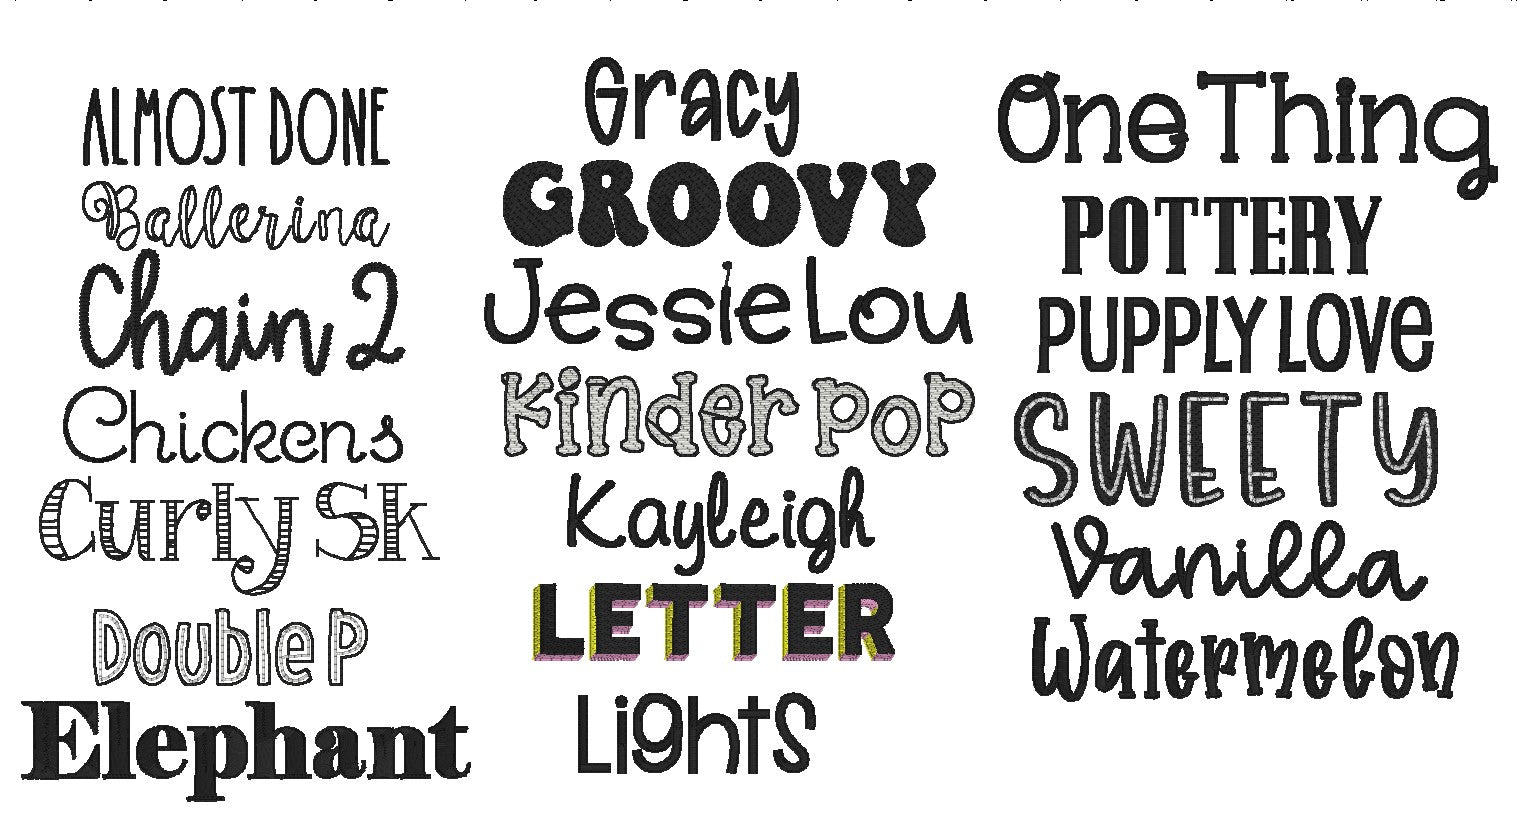 ALMOST DONE
Ballerina
Chain 2
Chickens
Curly Sk
Double P
Elephant
Gracy
GROOVY
Jessie Lou
Kinder Pop
Kayleigh
LETTER
Lights
One Thing
POTTERY
PUPPLY LOVe
SWEETY
Vanilla
Watermelon